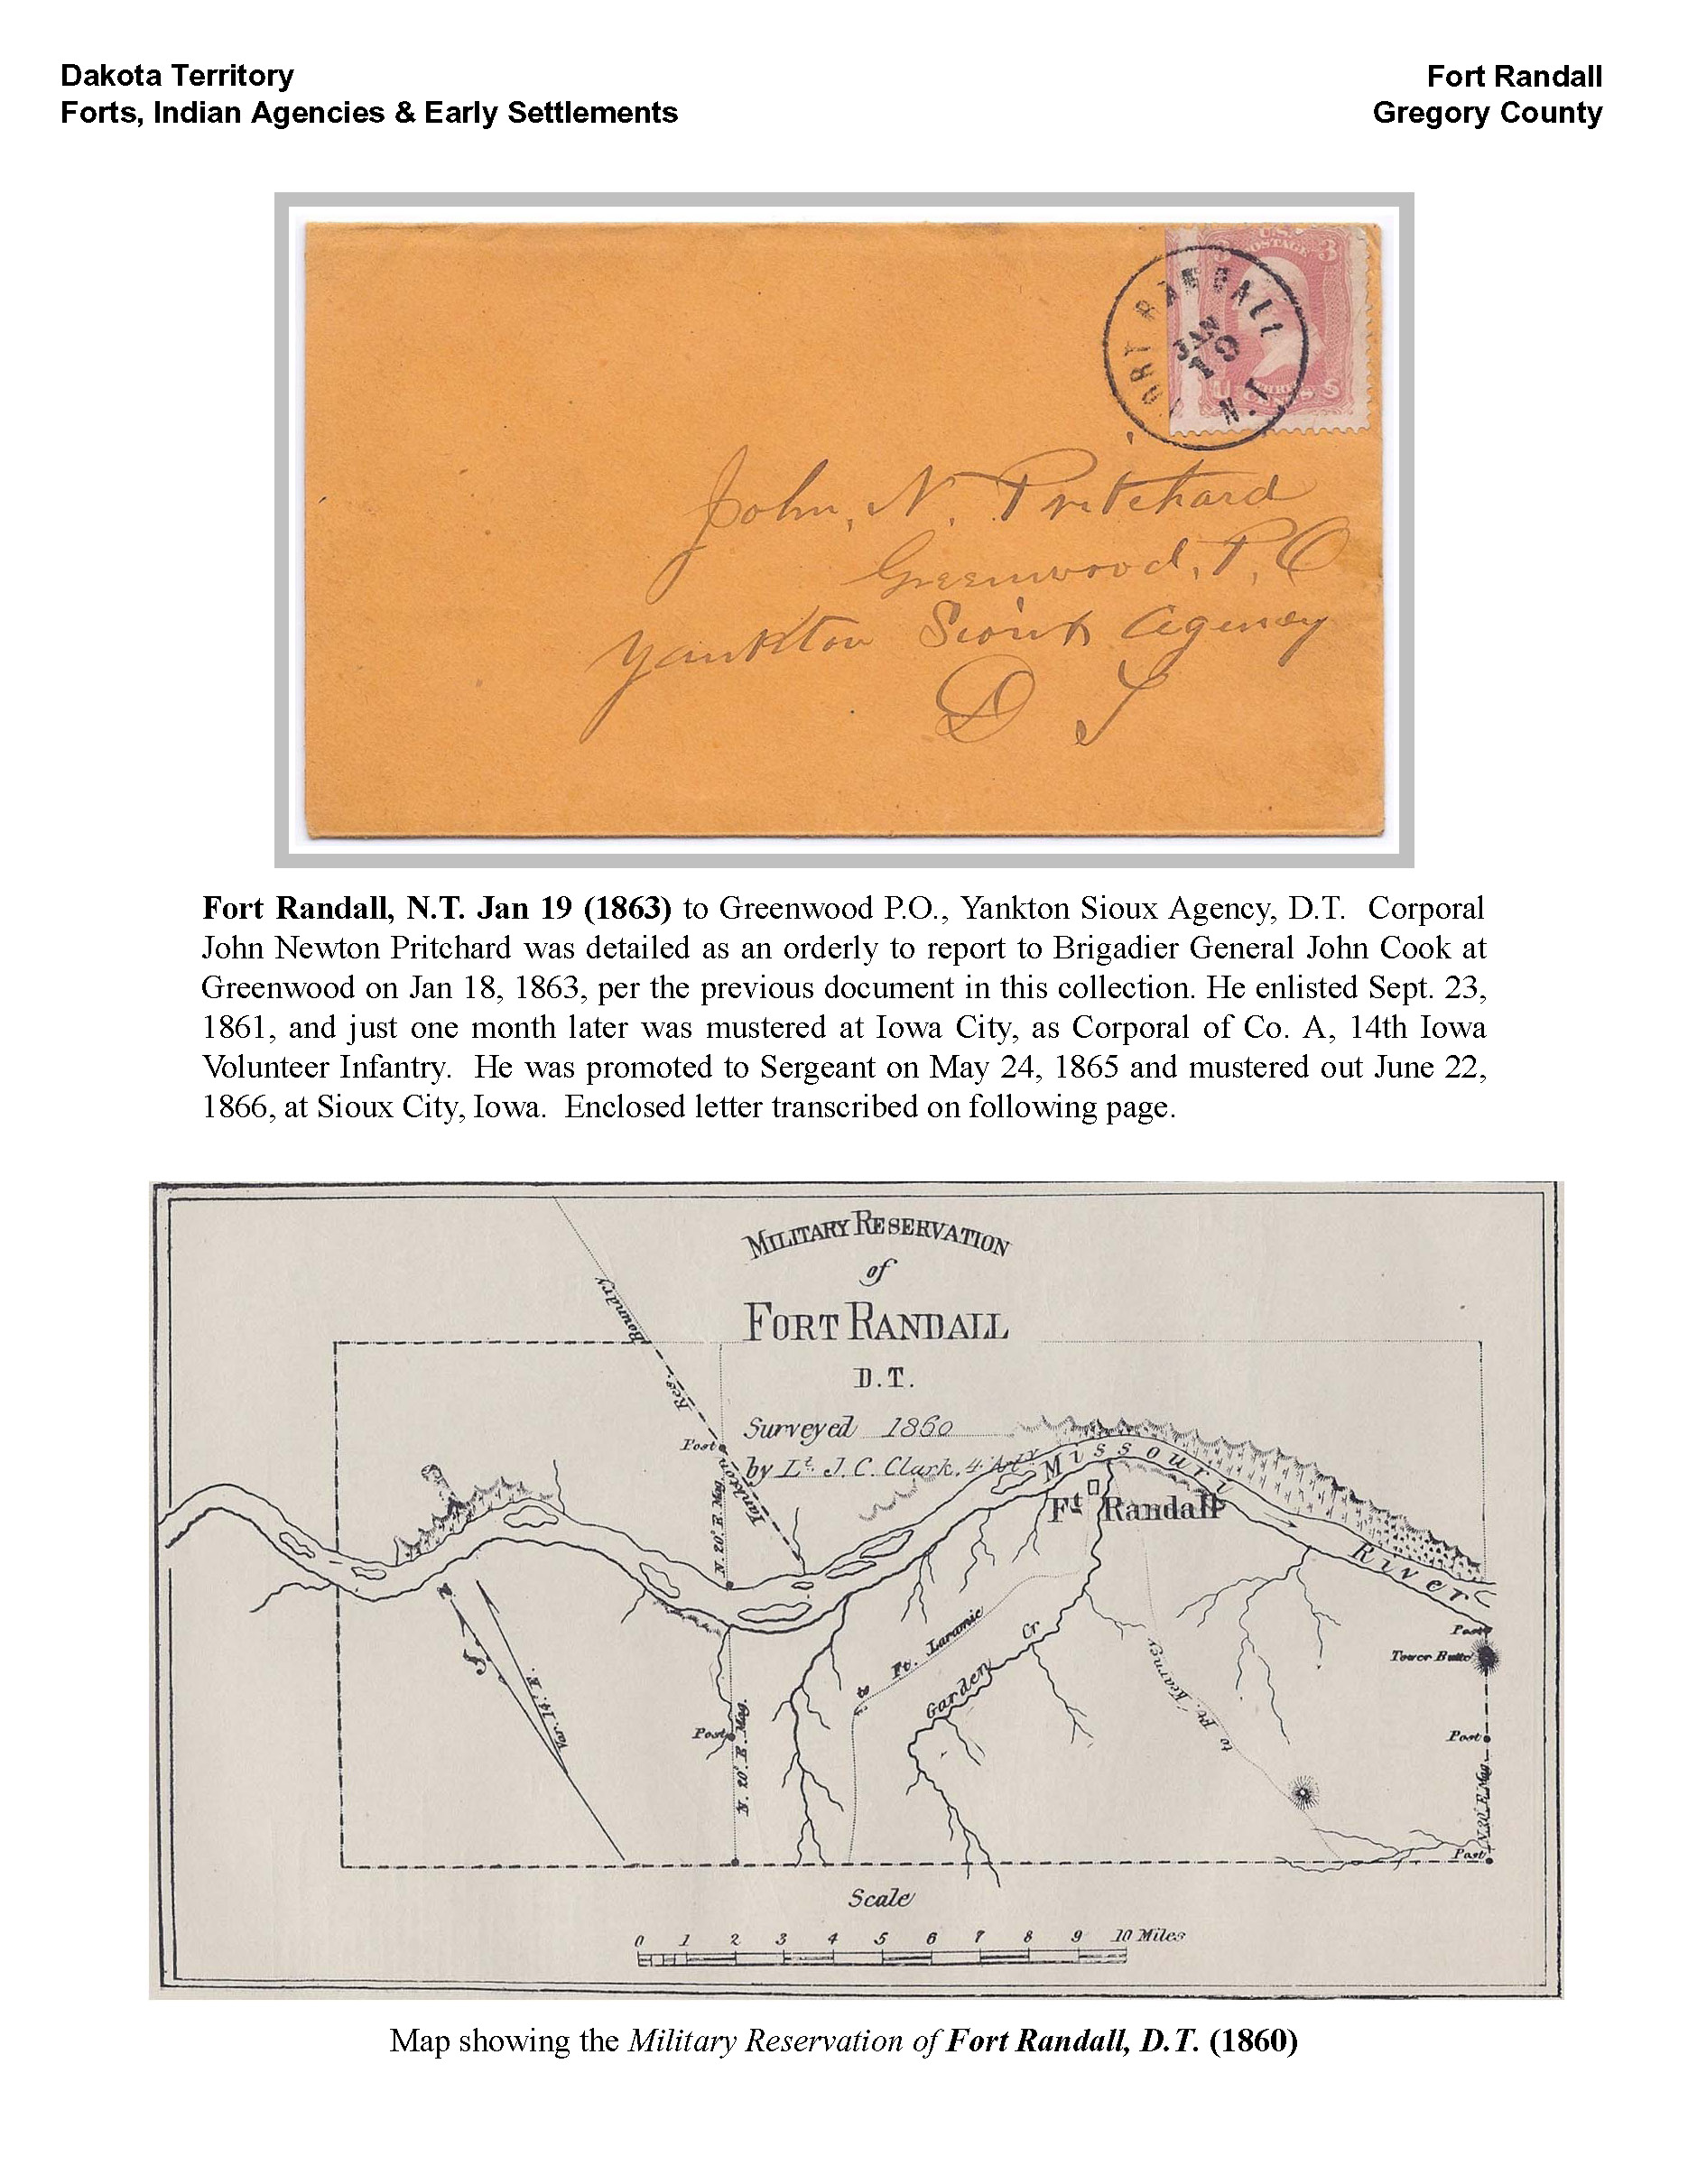 Dakota Territory
Forts, Indian Agencies & Early Settlements
Fort Randall
Gregory County
U.S. POSTAGE
3 3
U THREE CENTS S
FORT RANDALL
JAN
19
N.T
John, N. Pritchard
Greenwood, P, O
Yankton Sioux Agency
D T
Fort Randall, N.T. Jan 19 (1863) to Greenwood P.O., Yankton Sioux Agency, D.T. Corporal
John Newton Pritchard was detailed as an orderly to report to Brigadier General John Cook at
Greenwood on Jan 18, 1863, per the previous document in this collection. He enlisted Sept. 23,
1861, and just one month later was mustered at Iowa City, as Corporal of Co. A, 14th Iowa
Volunteer Infantry. He was promoted to Sergeant on May 24, 1865 and mustered out June 22,
1866, at Sioux City, Iowa. Enclosed letter transcribed on following page.
MILITARY RESERVATION
of
FORT RANDALL
D.T.
Surveyed 1860
by Lt. J. C. Clark, 4 Arty
Yankton Res. Boundry
Post
N. 20° E. Mag.
Missouri River
Ft Randall
to Ft. Laramie
Garden Cr
to Ft. Kearney
Var. 14° E.
Post
N. 20° E. Mag.
Post
Tower Butte
Post
N 20° E Mag
Post
Scale
0 1 2 3 4 5 6 7 8 9 10 Miles
Map showing the Military Reservation of Fort Randall, D.T. (1860)